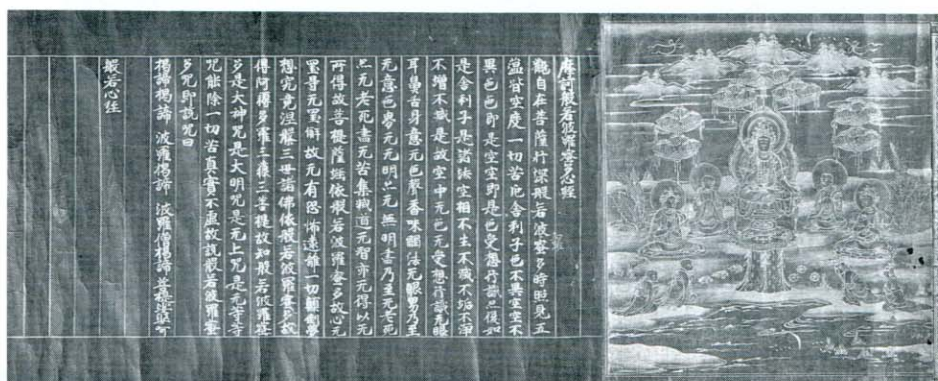 摩訶般若波羅蜜多心經
觀自在菩薩行深般若波蜜多時照見五
蘊皆空度一切苦厄舍利子色不異空空不
異色色即是空空即是色受想行識亦復如
是舍利子是諸法空相不生不滅不垢不淨
不增不減是故空中无色无受想行識无眼
耳鼻舌身意无色聲香味觸法无眼界乃至
无意色界无无明亦无無明盡乃至无老死
亦无老死盡无苦集滅道无智亦无得以无
所得故菩提薩埵依般若波羅蜜多故心无
罣㝵无罣㝵故无有恐怖遠離一切顛倒夢
想究竟涅槃三世諸佛依般若波羅蜜多故
得阿耨多羅三藐三菩提故知般若波羅蜜
多是大神咒是大明咒是无上咒是无等等
咒能除一切苦真實不虛故說般若波羅蜜
多咒即說咒曰
揭諦揭諦 波羅揭諦 波羅僧揭諦 菩提
般若心経